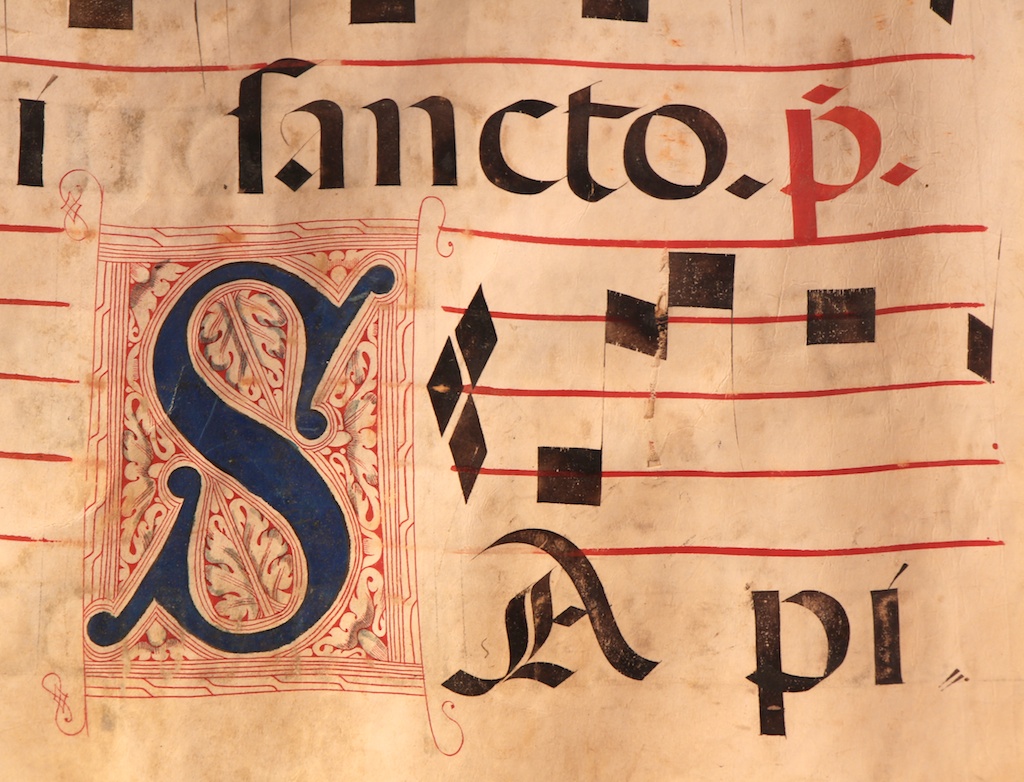 í sancto. p̍.
SA pí